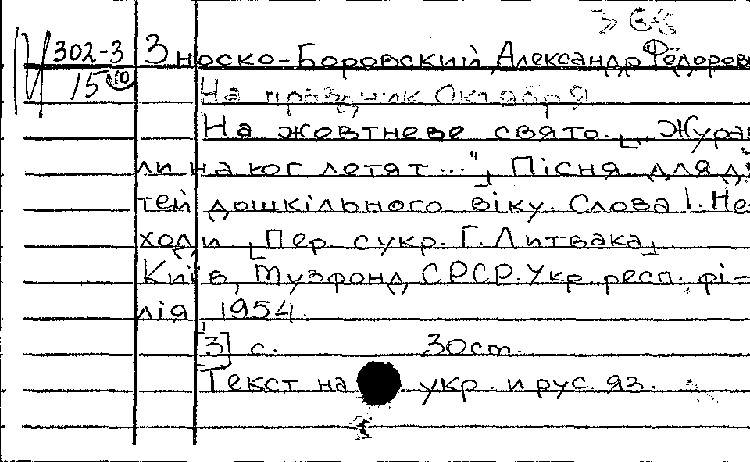 302-3 Зноско-Боровский, Александр Фёдоров
15
На праздник Октября
На жовтневе свято. „Жура
ли на юг летят...", Пісня для ді
тей дошкільного віку. Слова І. Не
ходи [Пер. с укр. Г. Литвака]
Київ, Музфонд СРСР. Укр. респ. фі-
лія 1954.
[3] с. 30 ст.
Текст на укр. и рус. яз.